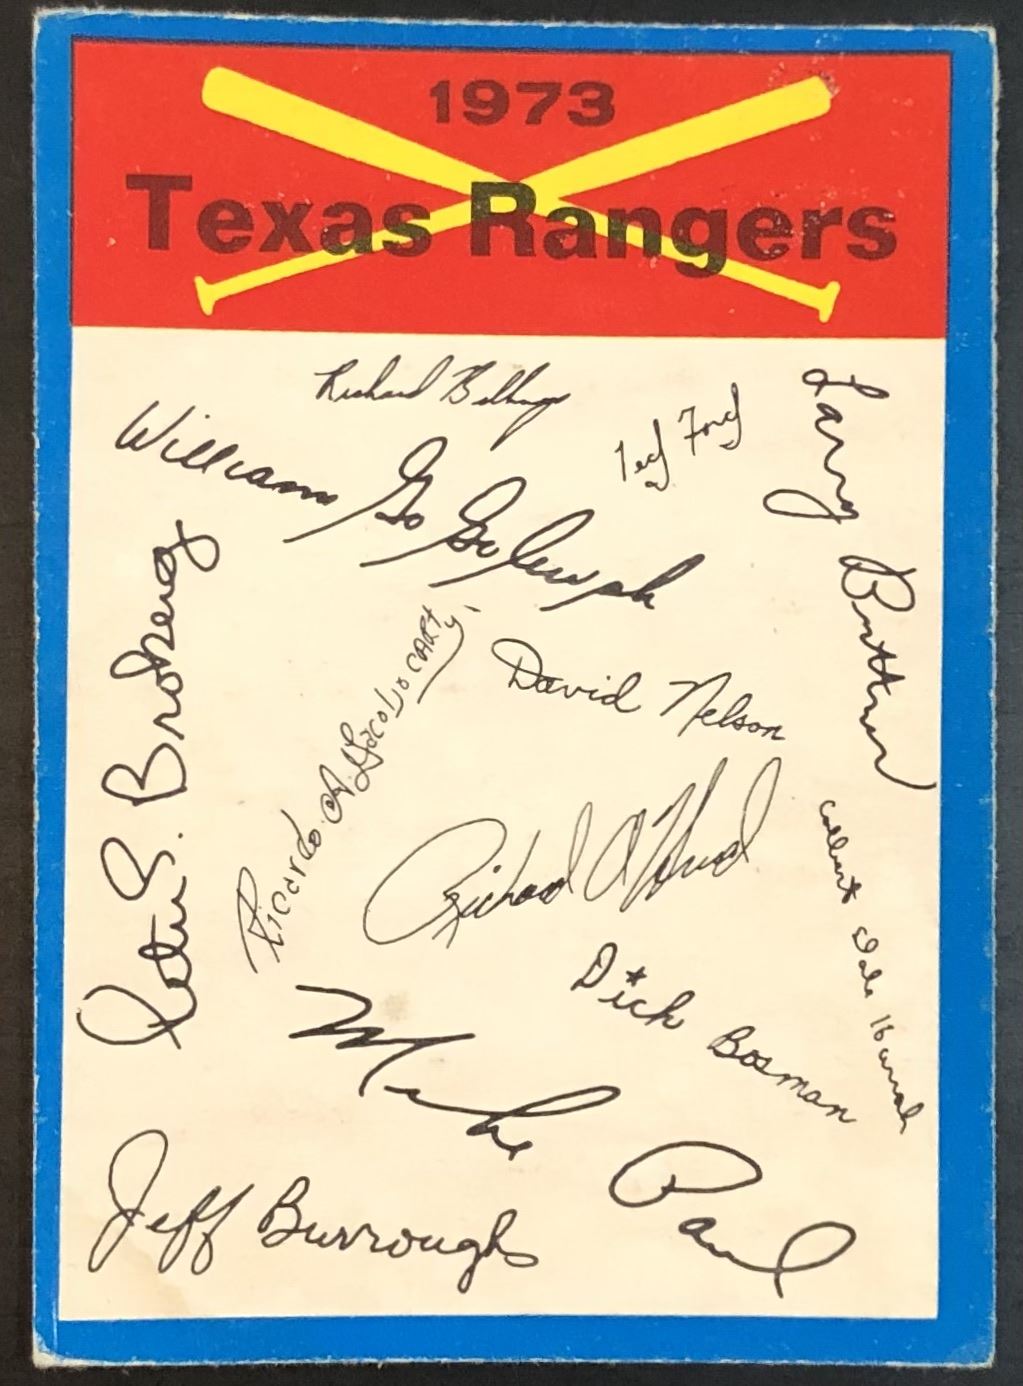 1973
Texas Rangers
Richard Billings
Ted Ford
Larry Biittner
William Go Gogolewski
Peter S. Broberg
Ricardo A. Jacobo CARTY
David Nelson
Richard A
Dick Bosman
Dale
Mike Paul
Jeff Burroughs